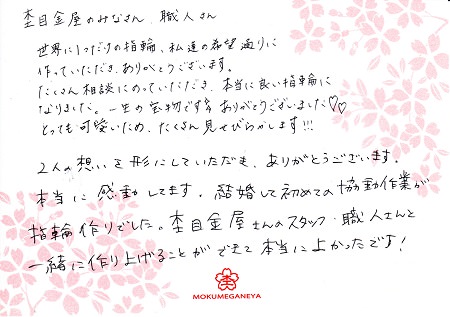 杢目金屋のみなさん、職人さん
世界に1つだけの指輪、私達の希望通りに
作っていただき、ありがとうございます。
たくさん相談にのっていただき、本当に良い指輪に
なりました。一生の宝物です。ありがとうございました♡♡
とっても可愛いため、たくさん見せびらかします!!!
2人の想いを形にしていただき、ありがとうございます。
本当に感動してます。結婚して初めての協動作業が
指輪作りでした。杢目金屋さんのスタッフ・職人さんと
一緒に作り上げることができて本当に良かったです!
MOKUMEGANEYA